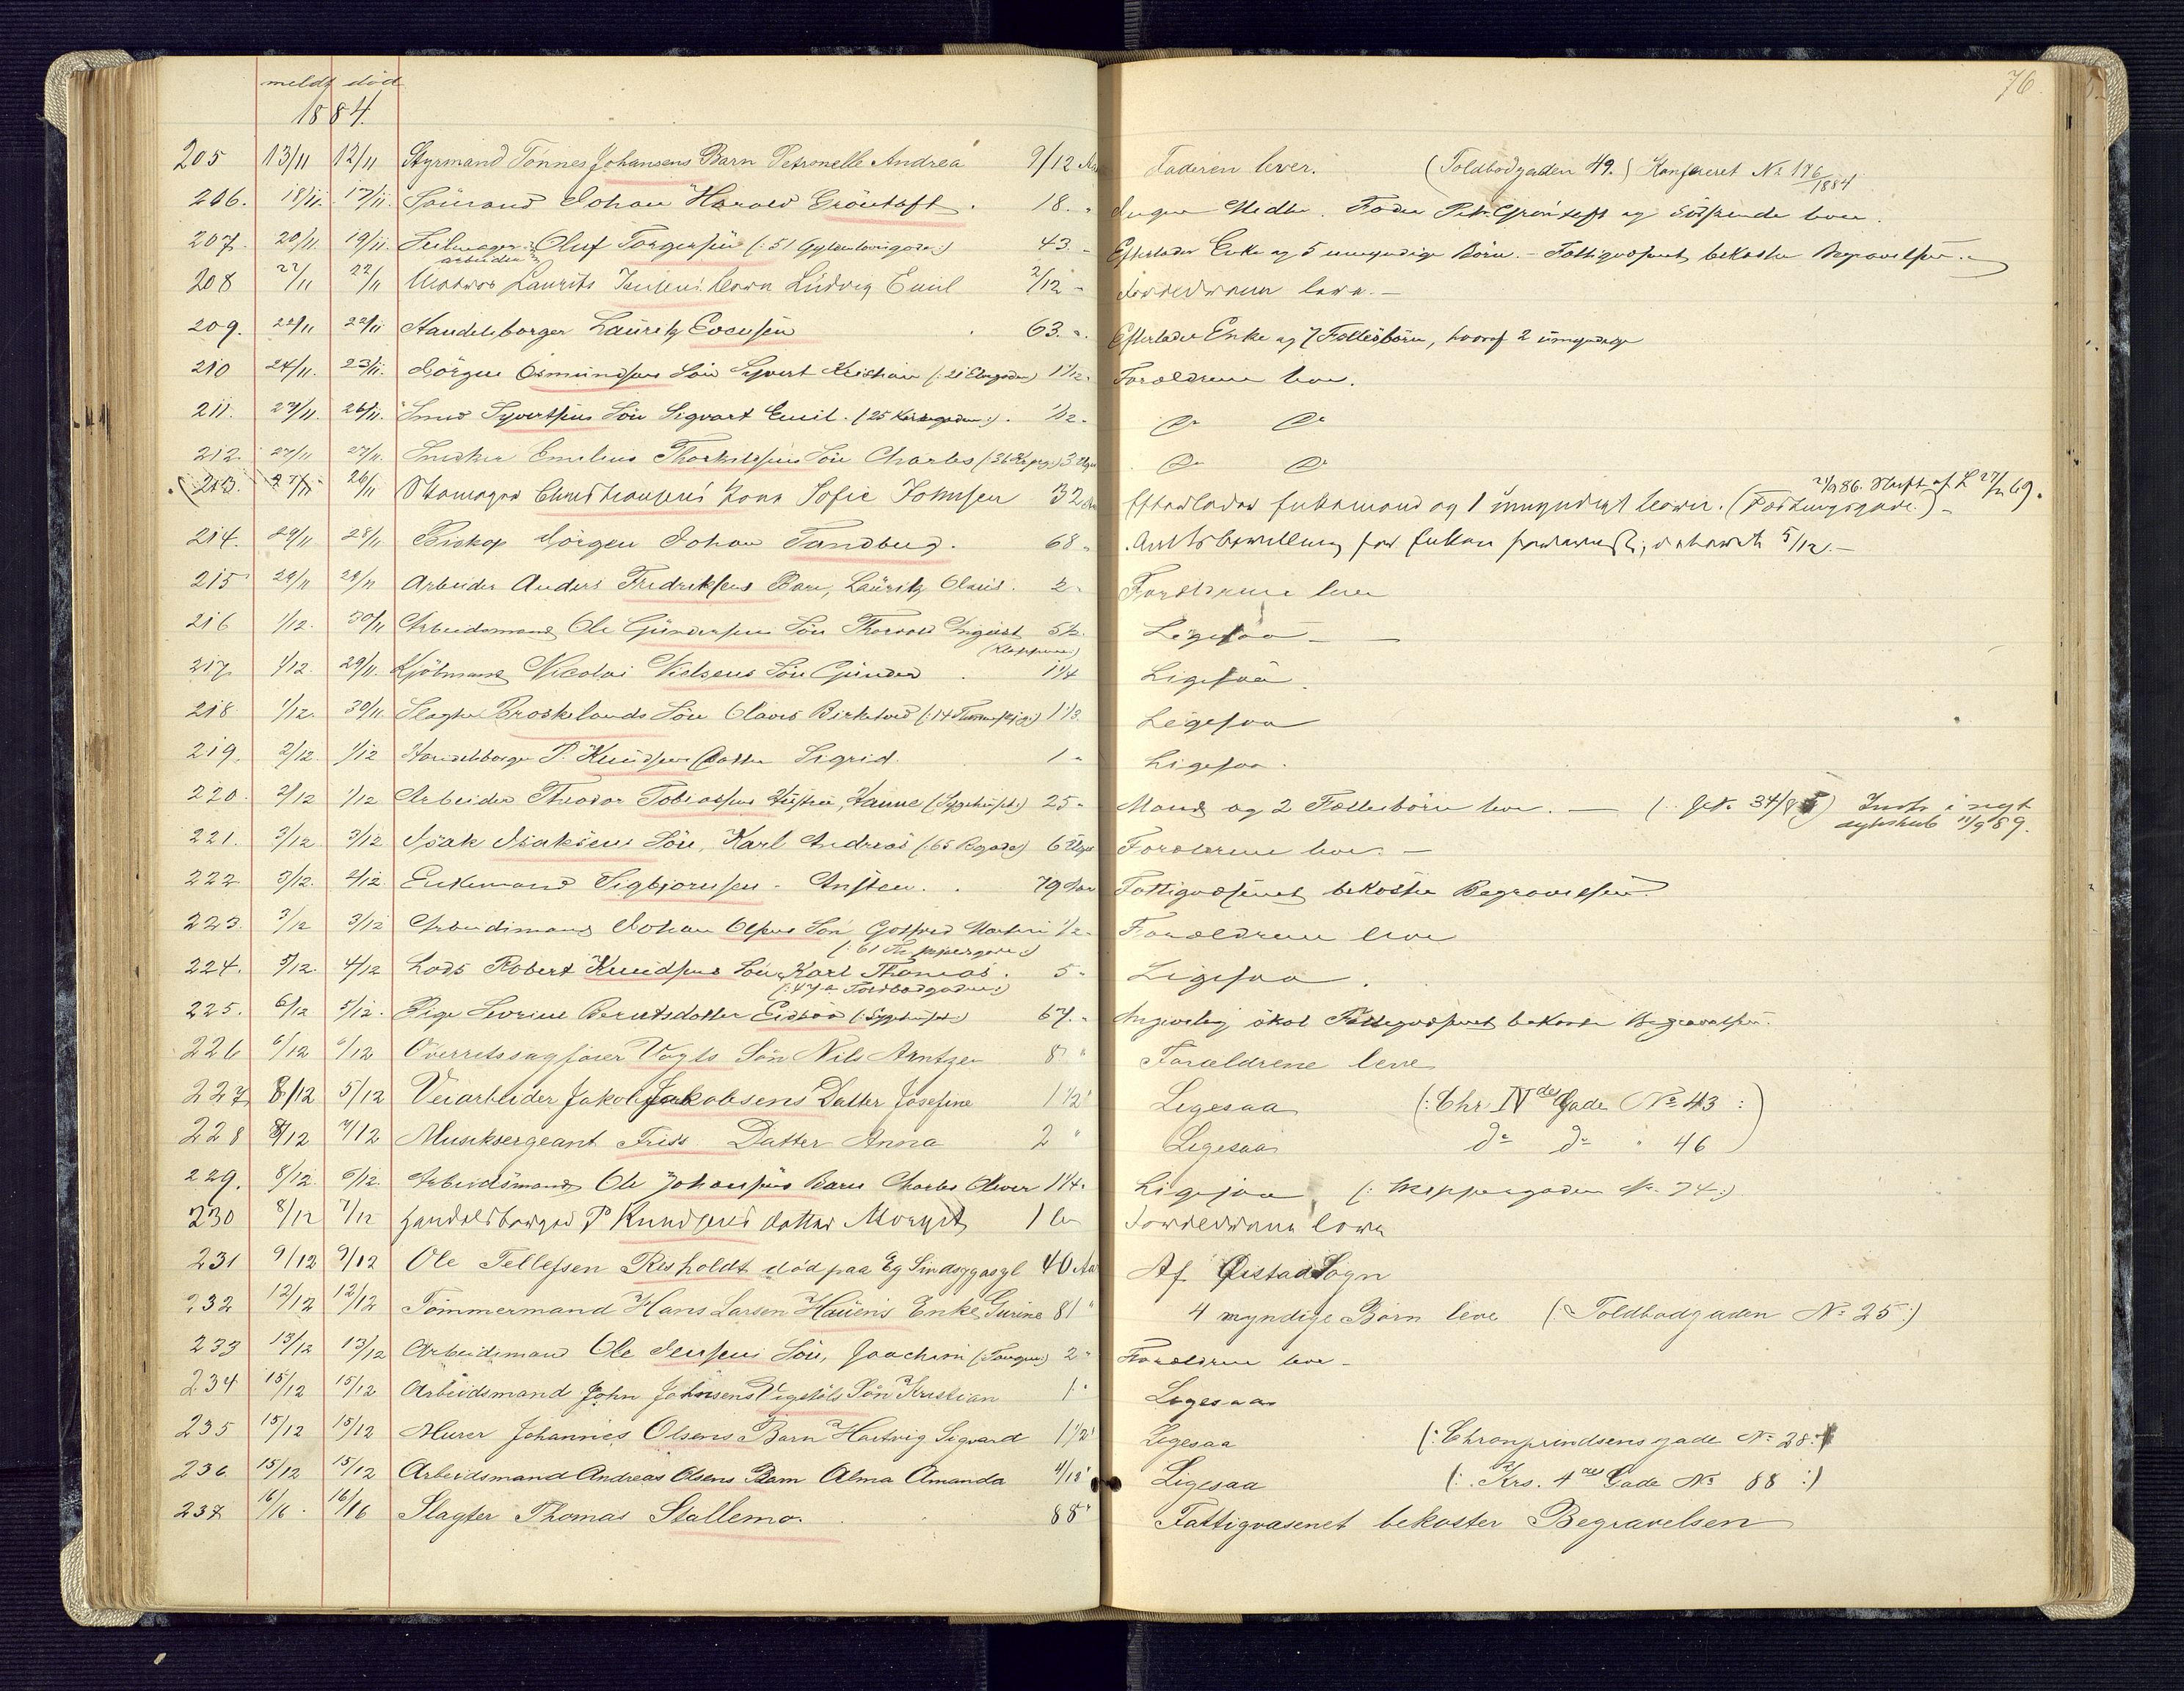 76.
meldt død
1884.
205 13/11 12/11 Styrmand Tønnes Johansens Barn Petronelle Andrea 9/12 Aar Faderen lever. (Toldbodgaden 49.) Konfereret No 176/1884
206. 18/11. 17/11. Sömand Johan Harald Gröntoft. 18. " Ingen Midler. Fader Petr. Gröntoft og Södskende lever.
207. 20/11. 19/11. Seilmager Oluf Torgersen (: 51 Gyldenlövsgade:) 43. " Efterlader Enke og 5 umyndige Börn. - Fattigvæsenet bekoster Begravelsen.
arbeider
208 22/11 22/11 Matros Laurits Jensens barn Ludvig Emil 2/12 " Forældrene leve. -
209. 22/11 22/11 Handelsborger Lauritz Evensen 63. ". Efterlader Enke og 7 Fællesbörn, hvoraf 2 umyndige
210 24/11. 23/11. Jörgen Osmundsens Sön Syvert Kristian (: 21 Elvegaden) 1 1/12 " Forældrene leve.
211. 27/11. 26/11. Smed Syvertsens Sön Sigvart Emil. (25 Kirkegaden:). 1/2 " Do Do
212. 27/11 27/11. Snedker Emilius Thorkildsens Sön Charles 3 Uger Do Do
213. 27/11 26/11 Skomager Christiansens kone Sofie Johnsen 32 Aar Efterlader Enkemand og 1 umyndigt barn. (Festningsgade.) -
214. 29/11 28/11 Biskop Jörgen Johan Tandberg. 68 " 5/12. -
215 29/11 29/11 Arbeider Anders Fredriksens Barn, Lauritz Olaus. 2 " Forældrene leve
216 1/12. 30/11 Arbeidsmand Ole Gundersens Sön Thorvald Ingvart 5 1/2. Ligesaa -
217. 1/12. 29/11. Kjöbmand Nicolai Nielsens Sön Gunder 1 1/4 Ligesaa.
218 1/12. 30/11. Slagter Broskelands Sön Olaves Birkeland 1 1/3. Ligesaa
219. 2/12. 1/12 Handelsborger P. Knudsens Datter Sigrid. 1 " Ligesaa.
220. 2/12 1/12 Arbeider Theodor Tobiassens Hustru, Hanne (Sygehuset:) 25 " Mand og 2 Fællesbörn leve. -
221. 3/12 3/12 Isak Isaksens Sön, Karl Andreas 6 Uger Forældrene leve. -
222 3/12. 2/12. Enkemand Sigbjornsen - Ansten. . 79 Aar Fattigvæsenet bekoster Begravelsen.
223. 3/12 3/12 Arbeidsmand Johan Olsens Sön Gotfred Martin 1/2 " Forældrene leve
224. 5/12. 4/12 Lods Robert Knudsens Sön Karl Thomas. 5 " Ligesaa.
(: 47 a Toldbodgaden:)
225. 6/12 5/12. Pige Sevrine Berntsdatter Eidsaa (: Sygehuset:) 67. " Fattigvæsenet bekoster Begravelsen.
226 6/12 6/12 Overretssagförer Vogts Sön Nils Arntzen 8 " Forældrene leve
227 8/12 5/12 Veiarbeider Jakob Jakobsens Datter Josefine 1 1/2 " Ligesaa (: Chr IVdes Gade No 43 :)
228 8/12 7/12 Musiksergeant Friis Datter Anna 2 " Ligesaa do do " 46
229. 8/12. 6/12. Arbeidsmand Ole Johansens Barn Charles Oliver 1 1/4. Ligesaa (: Skippergaden No. 74:)
230 8/12 7/12 Handelsborger P Knudsens datter Margit 1 Forældrene leve
231 9/12 9/12 Ole Tellefsen Risholdt død paa Eg Sindsygeasyl 40 Aar Af Øistad Sogn
232 12/12 12/12 Tømmermand Hans Larsen Haüens Enke Gurine 81 " 4 myndige Børn leve (: Toldbodgaden No 25:)
233 13/12 13/12 Arbeidsmand Ole Jensens Sön, Joachim (: Tangen:) 2 " Forældrene leve -
234 15/12 15/12 Arbeidsmand John Johnsens Vigstöls Søn Kristian 1 " Ligesaa
235 15/12 15/12 Murer Johannes Olsens Barn Hartvig Sigvard 1 1/2 " Ligesaa (: Chronprindsensgade No 28:)
236 15/12 15/12 Arbeidsmand Andreas Olsens Barn Alma Amanda 4/12 " Ligesaa (: Krs. 4des Gade No 88 :)
237 16/16. 16/16 Slagter Thomas Stallemo. 88 " Fattigvæsenet bekoster Begravelsen